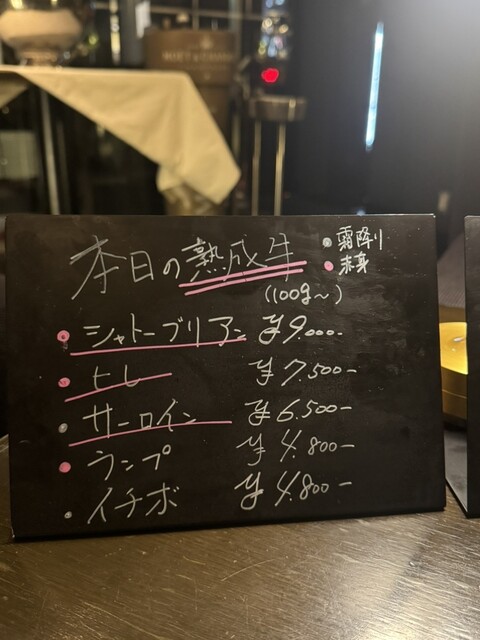 MOËT & CHANDON
本日の熟成牛
• 霜降り
• 赤身
(100g〜)
• シャトーブリアン ¥9.000-
• ヒレ ¥7.500-
• サーロイン ¥6.500-
• ランプ ¥4.800-
• イチボ ¥4.800-